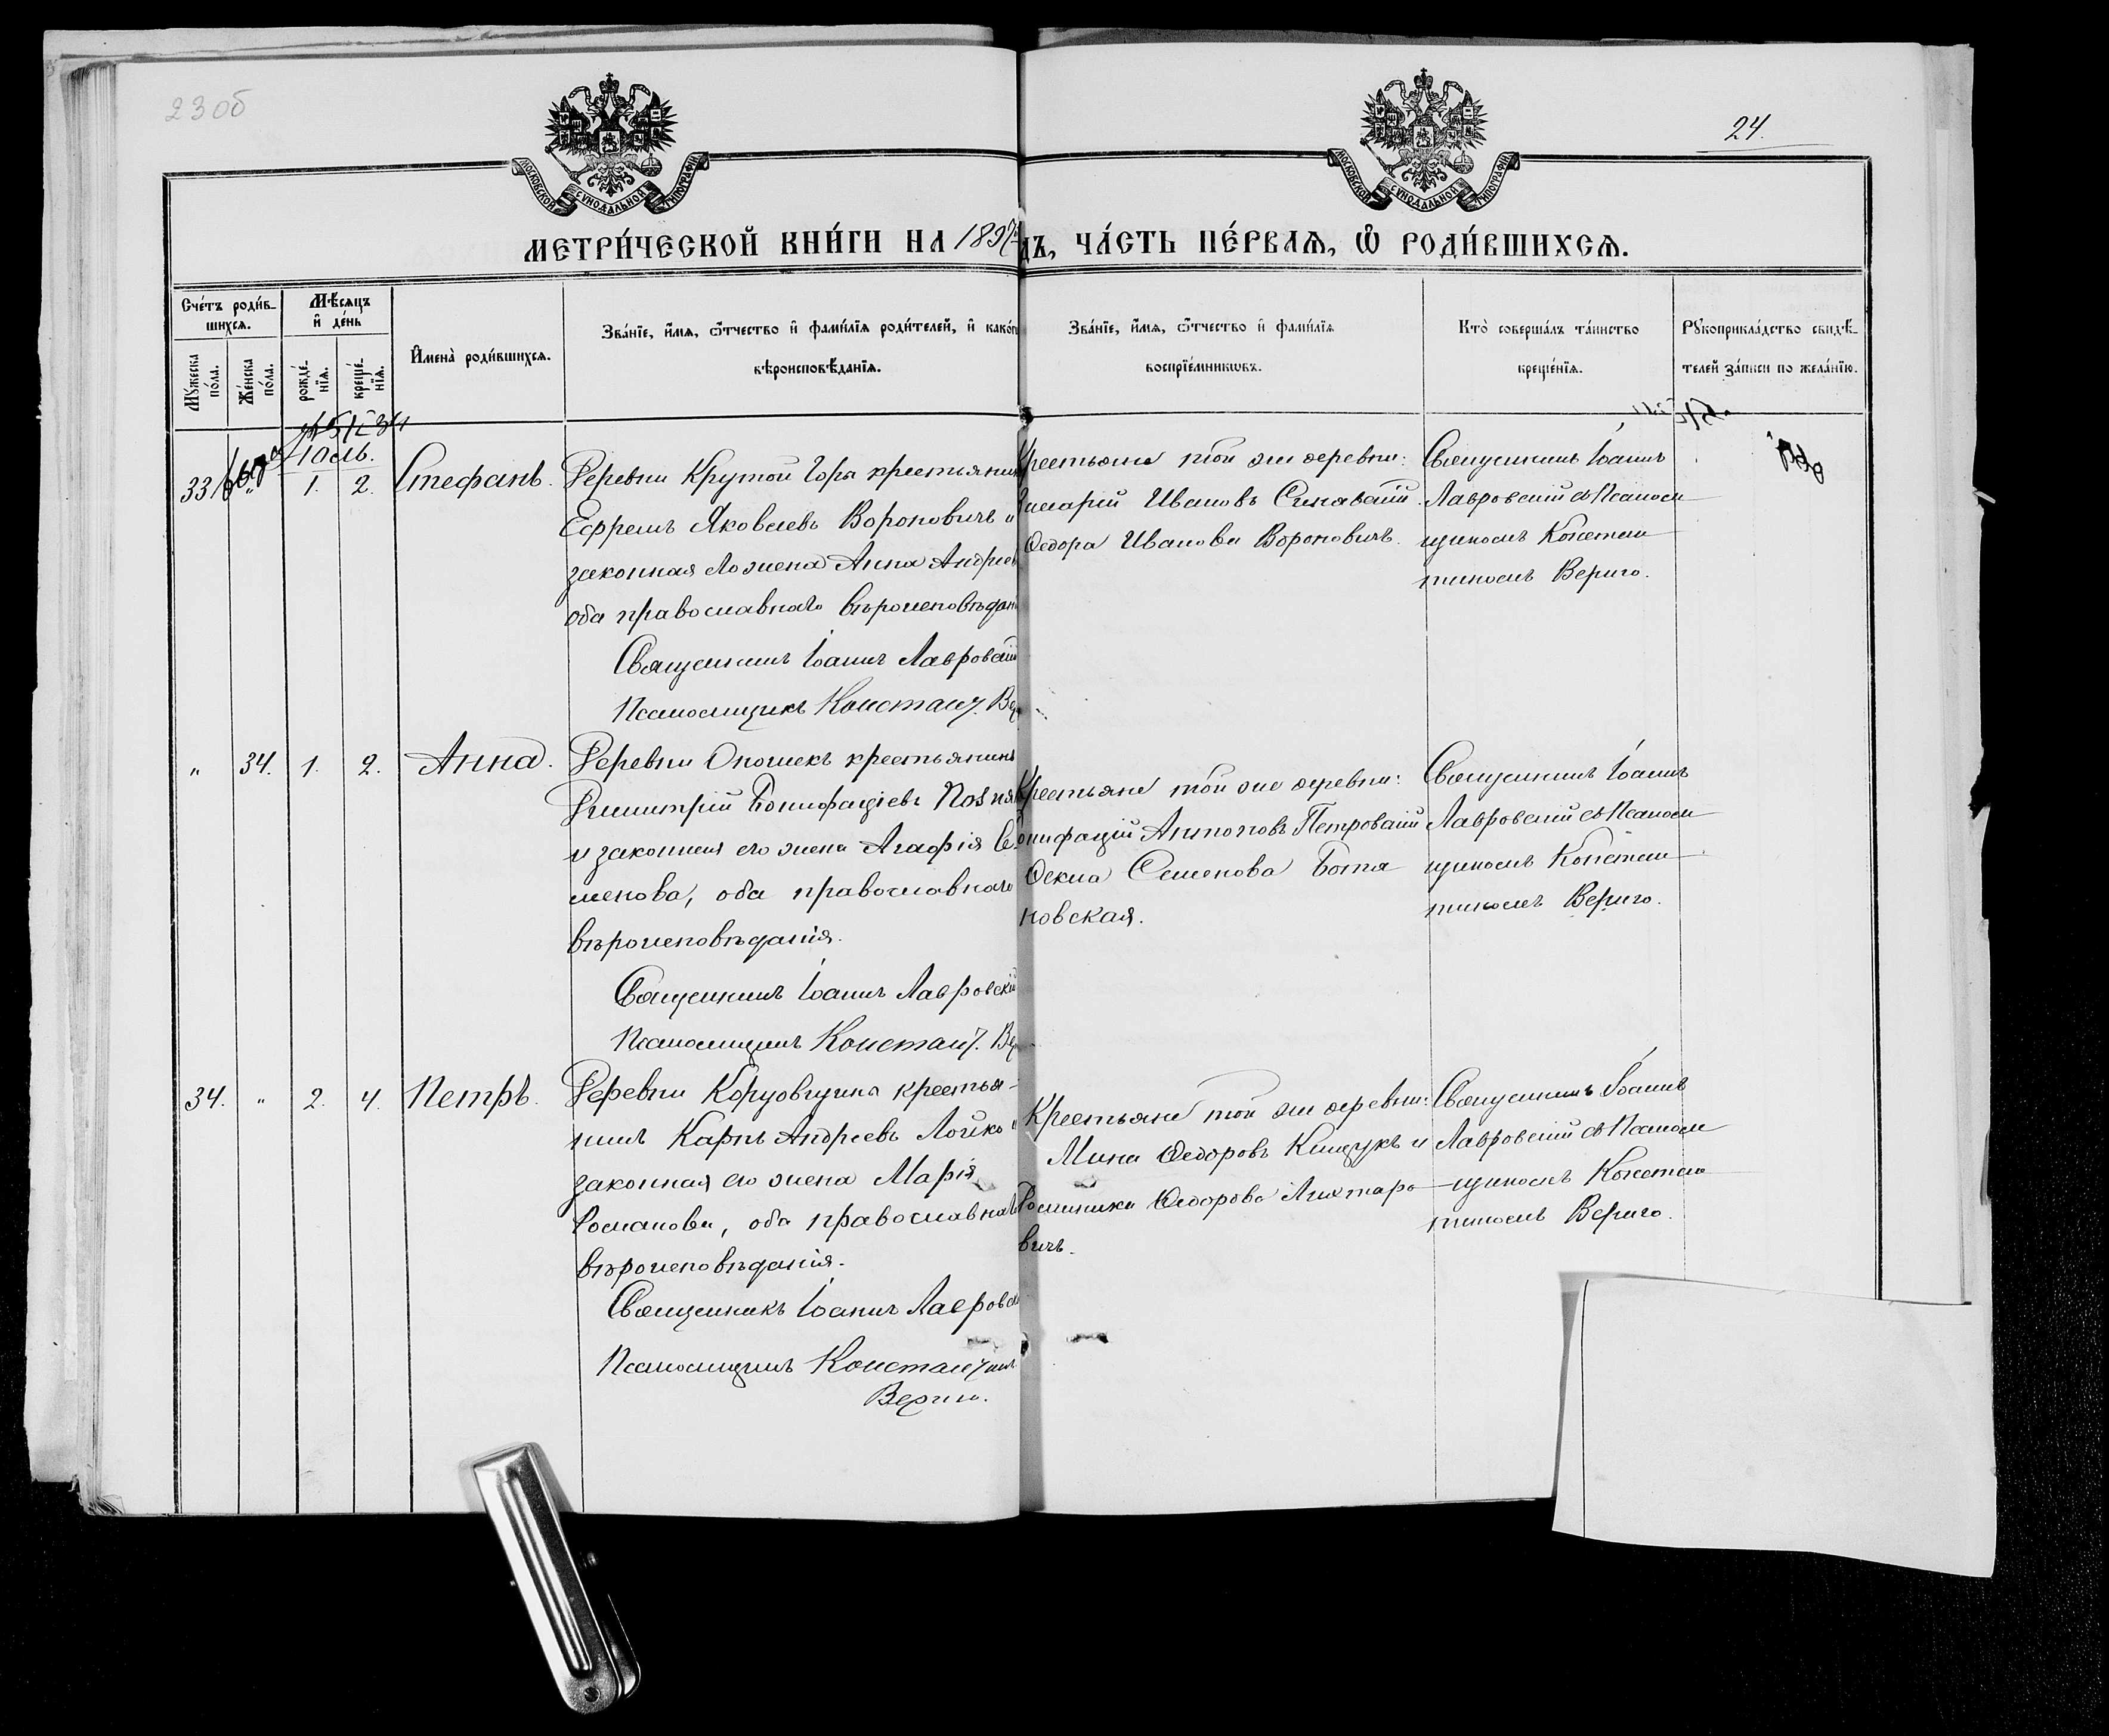 23 об
24.
МОСКОВСКОЙ СѴНОДАЛЬНОЙ ТИПОГРАФІИ
МОСКОВСКОЙ СѴНОДАЛЬНОЙ ТИПОГРАФІИ
МЕТРИ́ЧЕСКОЙ КНИ́ГИ НА 1897 дъ, ЧА́СТЬ ПЕ́РВАѦ, Ѽ РОДИ́ВШИХСѦ.
Сче́тъ роди́в-
шихсѧ.
Му́жеска по́ла.
Же́нска по́ла.
Мѣ́сѧцъ и҆ де́нь
рожде́-нїѧ.
креще́-нїѧ.
И҆мена̀ роди́вшихсѧ.
Зва́нїе, и҆́мѧ, ѻ҆́тчество и҆ фами́лїѧ роди́телей, и҆ како́г
вѣроисповѣ́данїѧ.
Зва́нїе, и҆́мѧ, ѻ҆́тчество и҆ фами́лїѧ
воспрїе́мникѡвъ.
Кто̀ соверша́лъ та́инство
креще́нїѧ.
Рꙋкоприкла́дство свидѣ́-
телей за́писи по жела́нїю.
Юль.
33 1. 2. Стефанъ.
Деревни Крутой Горы крестьянин
Ефремъ Яковлевъ Вороновичъ и
законная его жена Анна Андреев
оба православнаго вѣроисповѣдан
Священникъ Іоаннъ Лавровскій
Псаломщикъ Констант. Ве
Крестьяне той же деревни:
Ивановъ Синявскій
Ѳедора Иванова Вороновичъ.
Священникъ Іоаннъ
Лавровскій съ Псалом
щикомъ Констан
тиномъ Вериго.
" 34. 1. 2. Анна.
Деревни крестьянинъ
Димитрій Бонифаціевъ
и законная его жена Агафія Се
менова, оба православнаго
вѣроисповѣданія.
Священникъ Іоаннъ Лавровскій
Псаломщикъ Констант. Ве
Крестьяне той же деревни:
онифацій Антоновъ Петровскій
Ѳекла Семенова Ботя
новская.
Священникъ Іоаннъ
Лавровскій съ Псалом
щикомъ Констан
тиномъ Вериго.
34. " 2. 4. Петръ.
Деревни крестья-
нинъ Карпъ Андреевъ Лойко и
законная его жена Марія
Романова, оба православнаго
вѣроисповѣданія.
Священникъ Іоаннъ Лавровск
Псаломщикъ Константинъ
Вериго.
Крестьяне той же деревни:
Мина Ѳедоровъ Кищукъ и
Ѳедорова Лихтаро
вичъ.
Священникъ Іоаннъ
Лавровскій съ Псалом
щикомъ Констан
тиномъ Вериго.